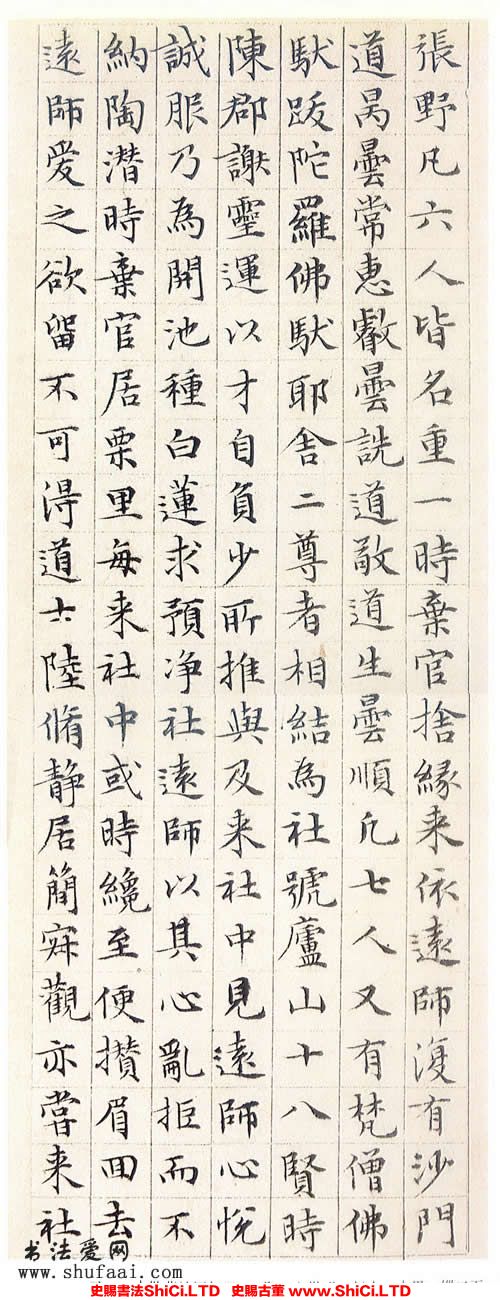 張野凡六人皆名重一時棄官捨緣来依遠師復有沙門
道昺曇常惠叡曇詵道敬道生曇順凡七人又有梵僧佛
馱跋陀羅佛馱耶舍二尊者相結為社號廬山十八賢時
陳郡謝靈運以才自負少所推與及来社中見遠師心悅
誠服乃為開池種白蓮求預净社遠師以其心亂拒而不
納陶潜時棄官居栗里每来社中或時纔至便攅眉回去
遠師爱之欲留不可得道士陸脩静居簡寂觀亦嘗来社
书法爱网
www.shufaai.com
史賜書法ShiCi.LTD 史賜古董 www.ShiCi.LTD